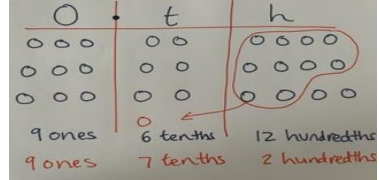 O . t h
9 ones 6 tenths 12 hundredths
9 ones 7 tenths 2 hundredths